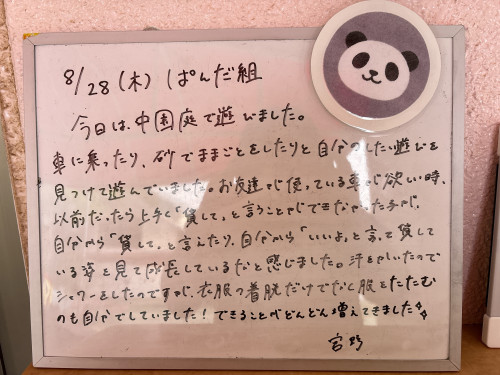 8/28(木) ぱんだ組
今日は、中園庭で遊びました。
車に乗ったり、砂でままごとをしたりと自分のしたい遊びを
見つけて遊んでいました。お友達が使っている車が欲しい時、
以前だったら上手く「貸して」と言うことができなかった子が、
自分から「貸して」と言えたり、自分から「いいよ」と言って貸して
いる姿を見て成長しているなと感じました。汗をかいたので
シャワーをしたのですが、衣服の着脱だけでなく服をたたむ
のも自分でしていました!できることがどんどん増えてきました